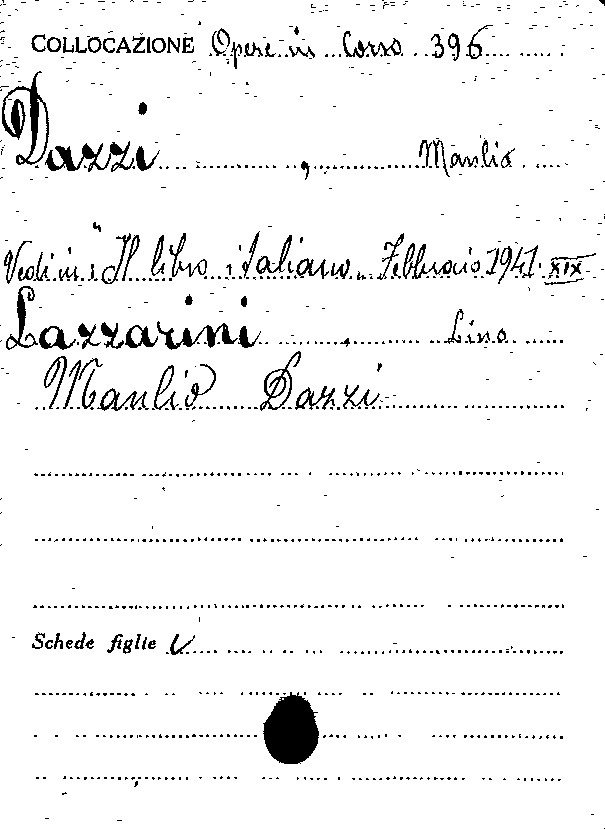 COLLOCAZIONE Opere in Corso 396
Dazzi , Manlio
Vedi in: "Il libro italiano" Febbraio 1941. XIX
Lazzarini , Lino
Manlio Dazzi
Schede figlie V